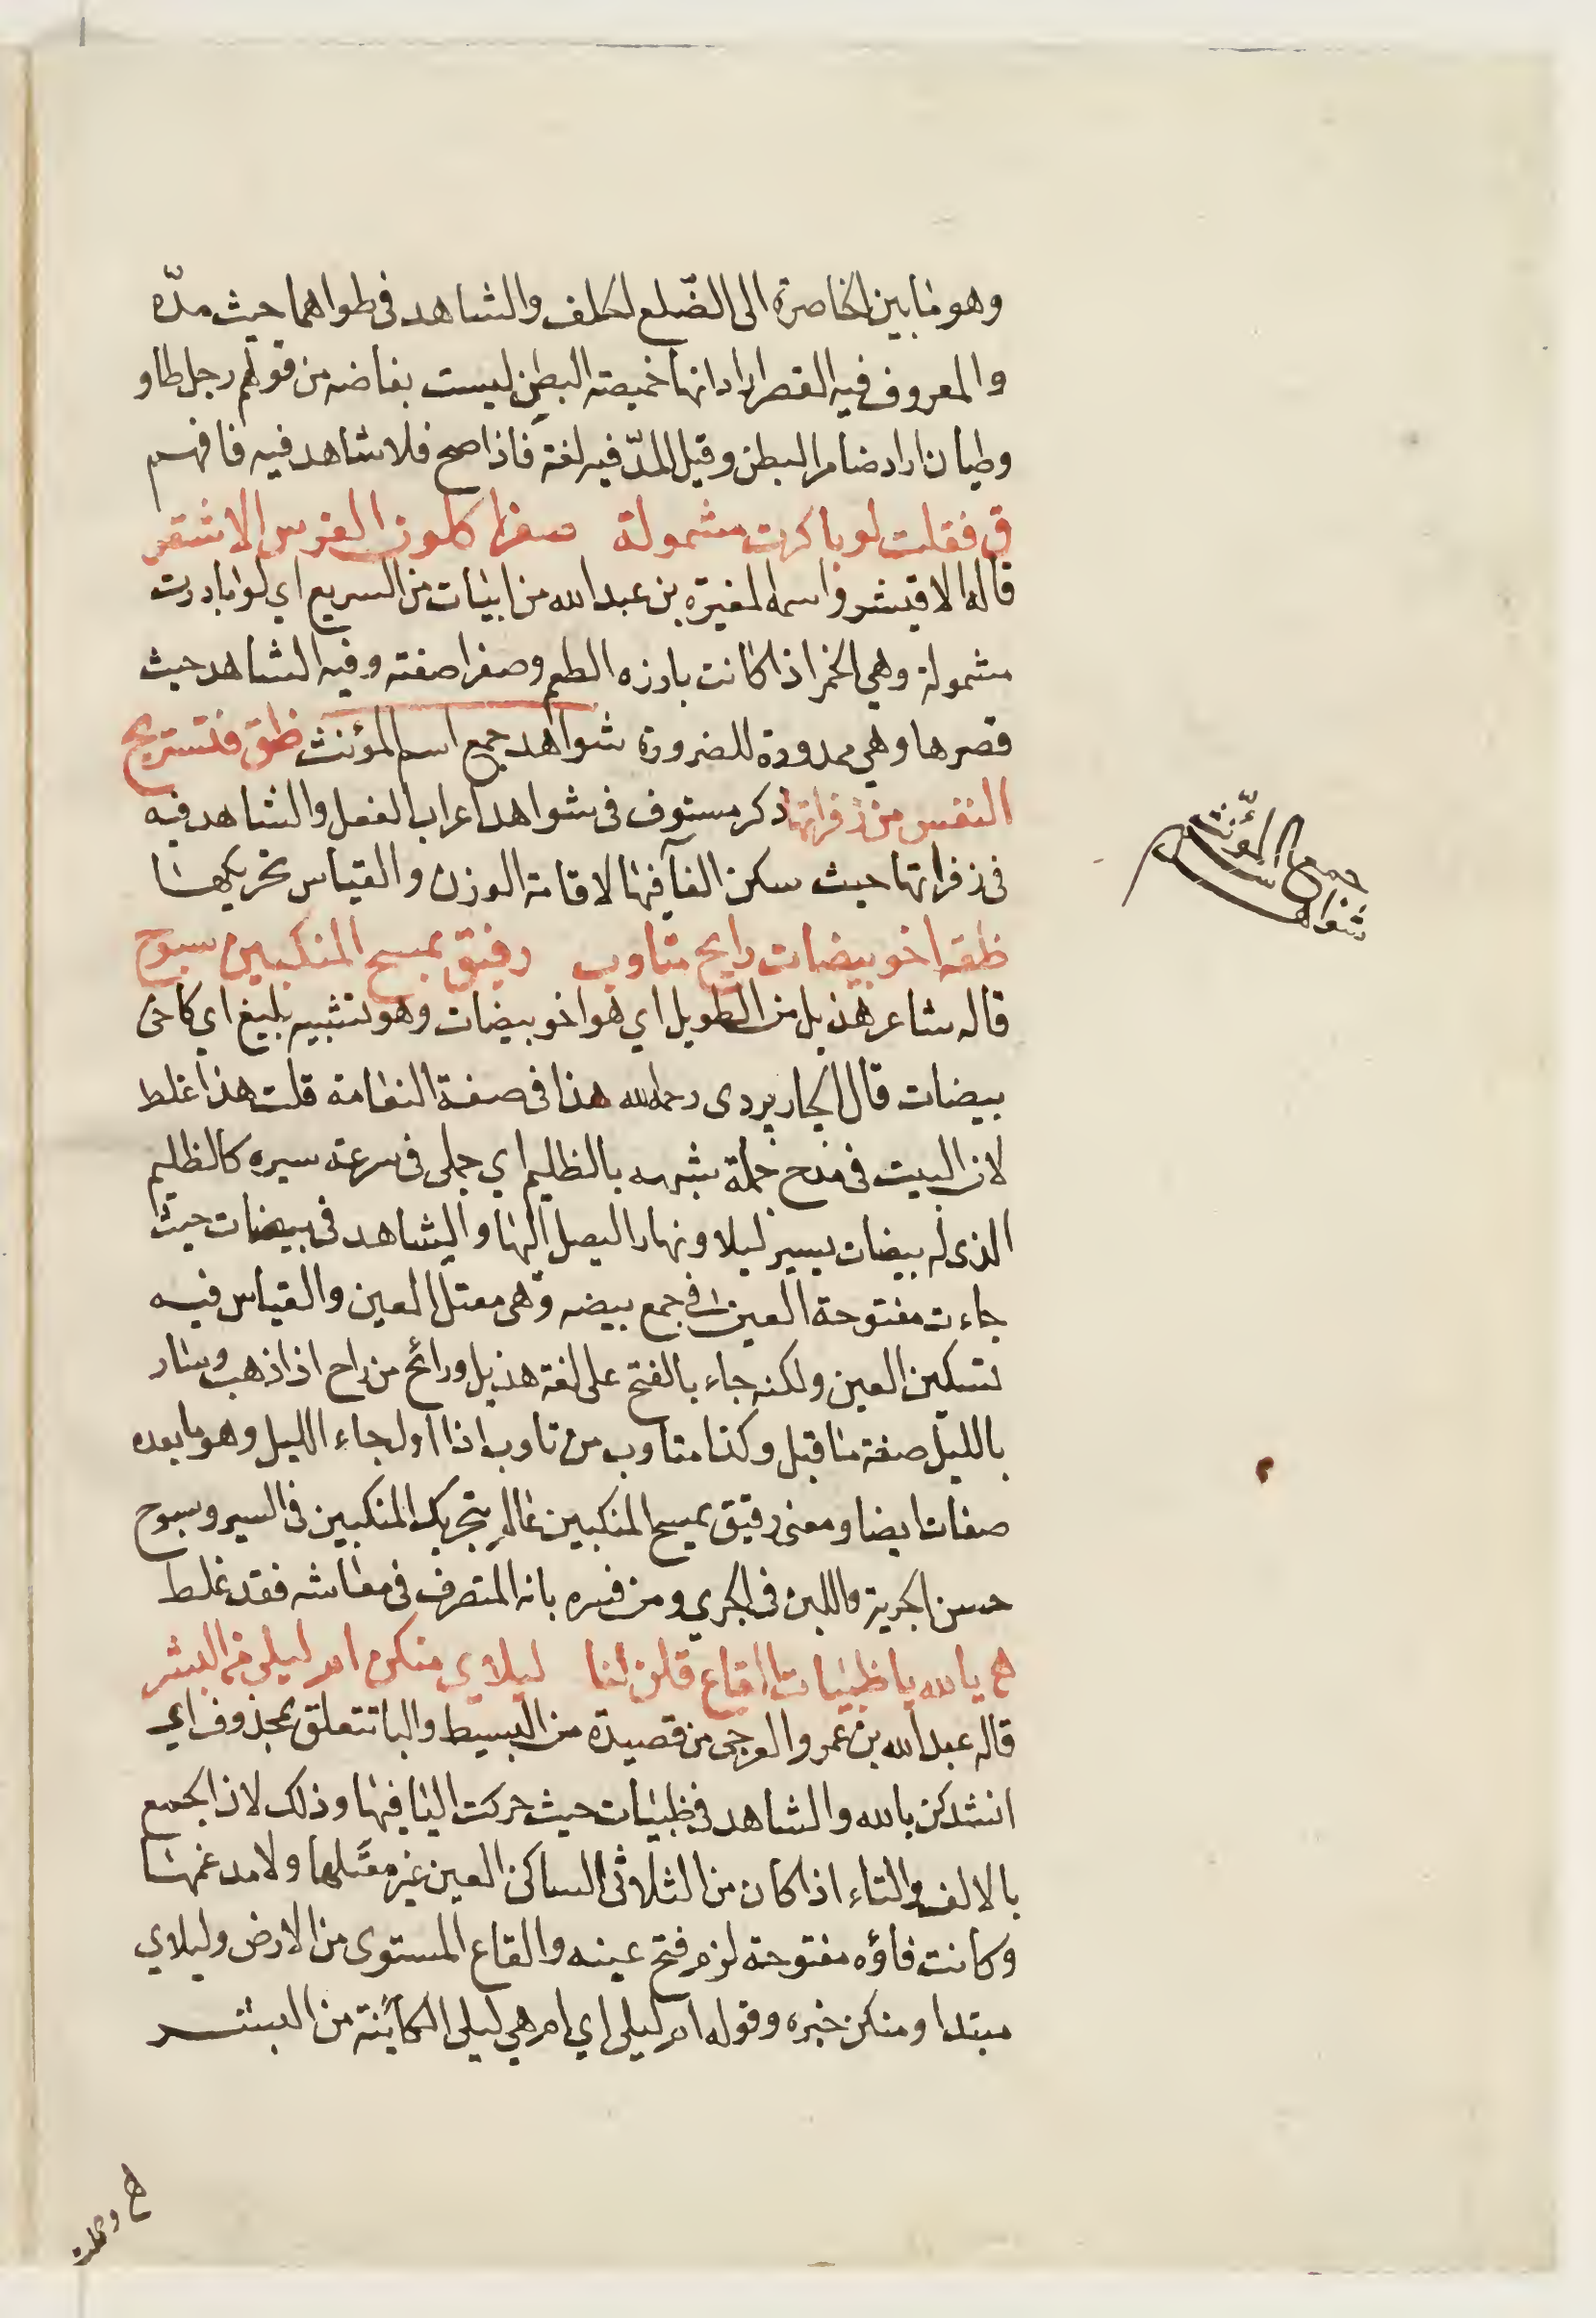 وهو ما بين الخاصرة الى الضّلع الخلف والشاهد فى طواهما حيث مدّه
والمعروف فيه القصر اراد انها خميصة البطن ليست بفاضه من قولهم رجل طاو
وطيان اراد ضامر البطن وقيل المدّ فيه لغة فاذا صح فلا شاهد فيه فافهم
ق فقلت لو باكرت مشمولة صفرا كلون الفرس الاشقر
قاله الاقيشر واسمه المغيرة بن عبد الله من ابيات من السريع اي لو بادرت
مشمولة وهي الخمر اذا كانت باردة الطعم وصفرا صفته وفيه الشاهد حيث
قصرها وهي ممدودة للضرورة شواهد جمع اسم المؤنث ظق فتستريح
النفس من زفراتها ذكر مستوف فى شواهد اعراب الفعل والشاهد فيه
فى زفراتها حيث سكن الفآ فيها لاقامة الوزن والقياس تحريكها
ظقه اخو بيضات رايح متاوب رفيق بمسح المنكبين سبوح
قاله شاعر هذيل من الطويل اي هو اخو بيضات وهو تشبيه بليغ اي كاخى
بيضات قال الجاربردى رحمه الله هذا فى صفة النعامة قلت هذا غلط
لان البيت فى مدح جمله شبهه بالظليم اي جملى فى سرعة سيره كالظليم
الذى له بيضات يسير ليلا ونهارا ليصل اليها والشاهد فى بيضات حيث
جاءت مفتوحة العين فى جمع بيضه وهى معتل العين والقياس فيه
تسكين العين ولكنه جاء بالفتح على لغة هذيل ورائح من راح اذا ذهب وسار
بالليل صفة ما قبل وكذا متاوب من تاوب اذا اول جاء الليل وهو ما بعده
صفات ايضا ومعنى رفيق بمسح المنكبين عالم بتحريك المنكبين فى السير وسبوح
حسن الجرية واللين فى الجري ومن فسره بانه المتصرف فى معاشه فقد غلط
هح بالله يا ظبيات القاع قلن لنا ليلاي منكن ام ليلى من البشر
قاله عبد الله بن عمرو العرجى من قصيدة من البسيط والبا تتعلق بمحذوف اي
انشدكن بالله والشاهد فى ظبيات حيث حركت اليا فيها وذلك لان الجمع
بالالف والتاء اذا كان من الثلاثى الساكن العين غير معتلها ولا مدغمها
وكانت فاؤه مفتوحة لزم فتح عينه والقاع المستوى من الارض وليلاي
مبتدا ومنكن خبره وقوله ام ليلى اي ام هي ليلى الكآئنة من البشر
شواهد
جمع اسم المؤنث
هح وحملت